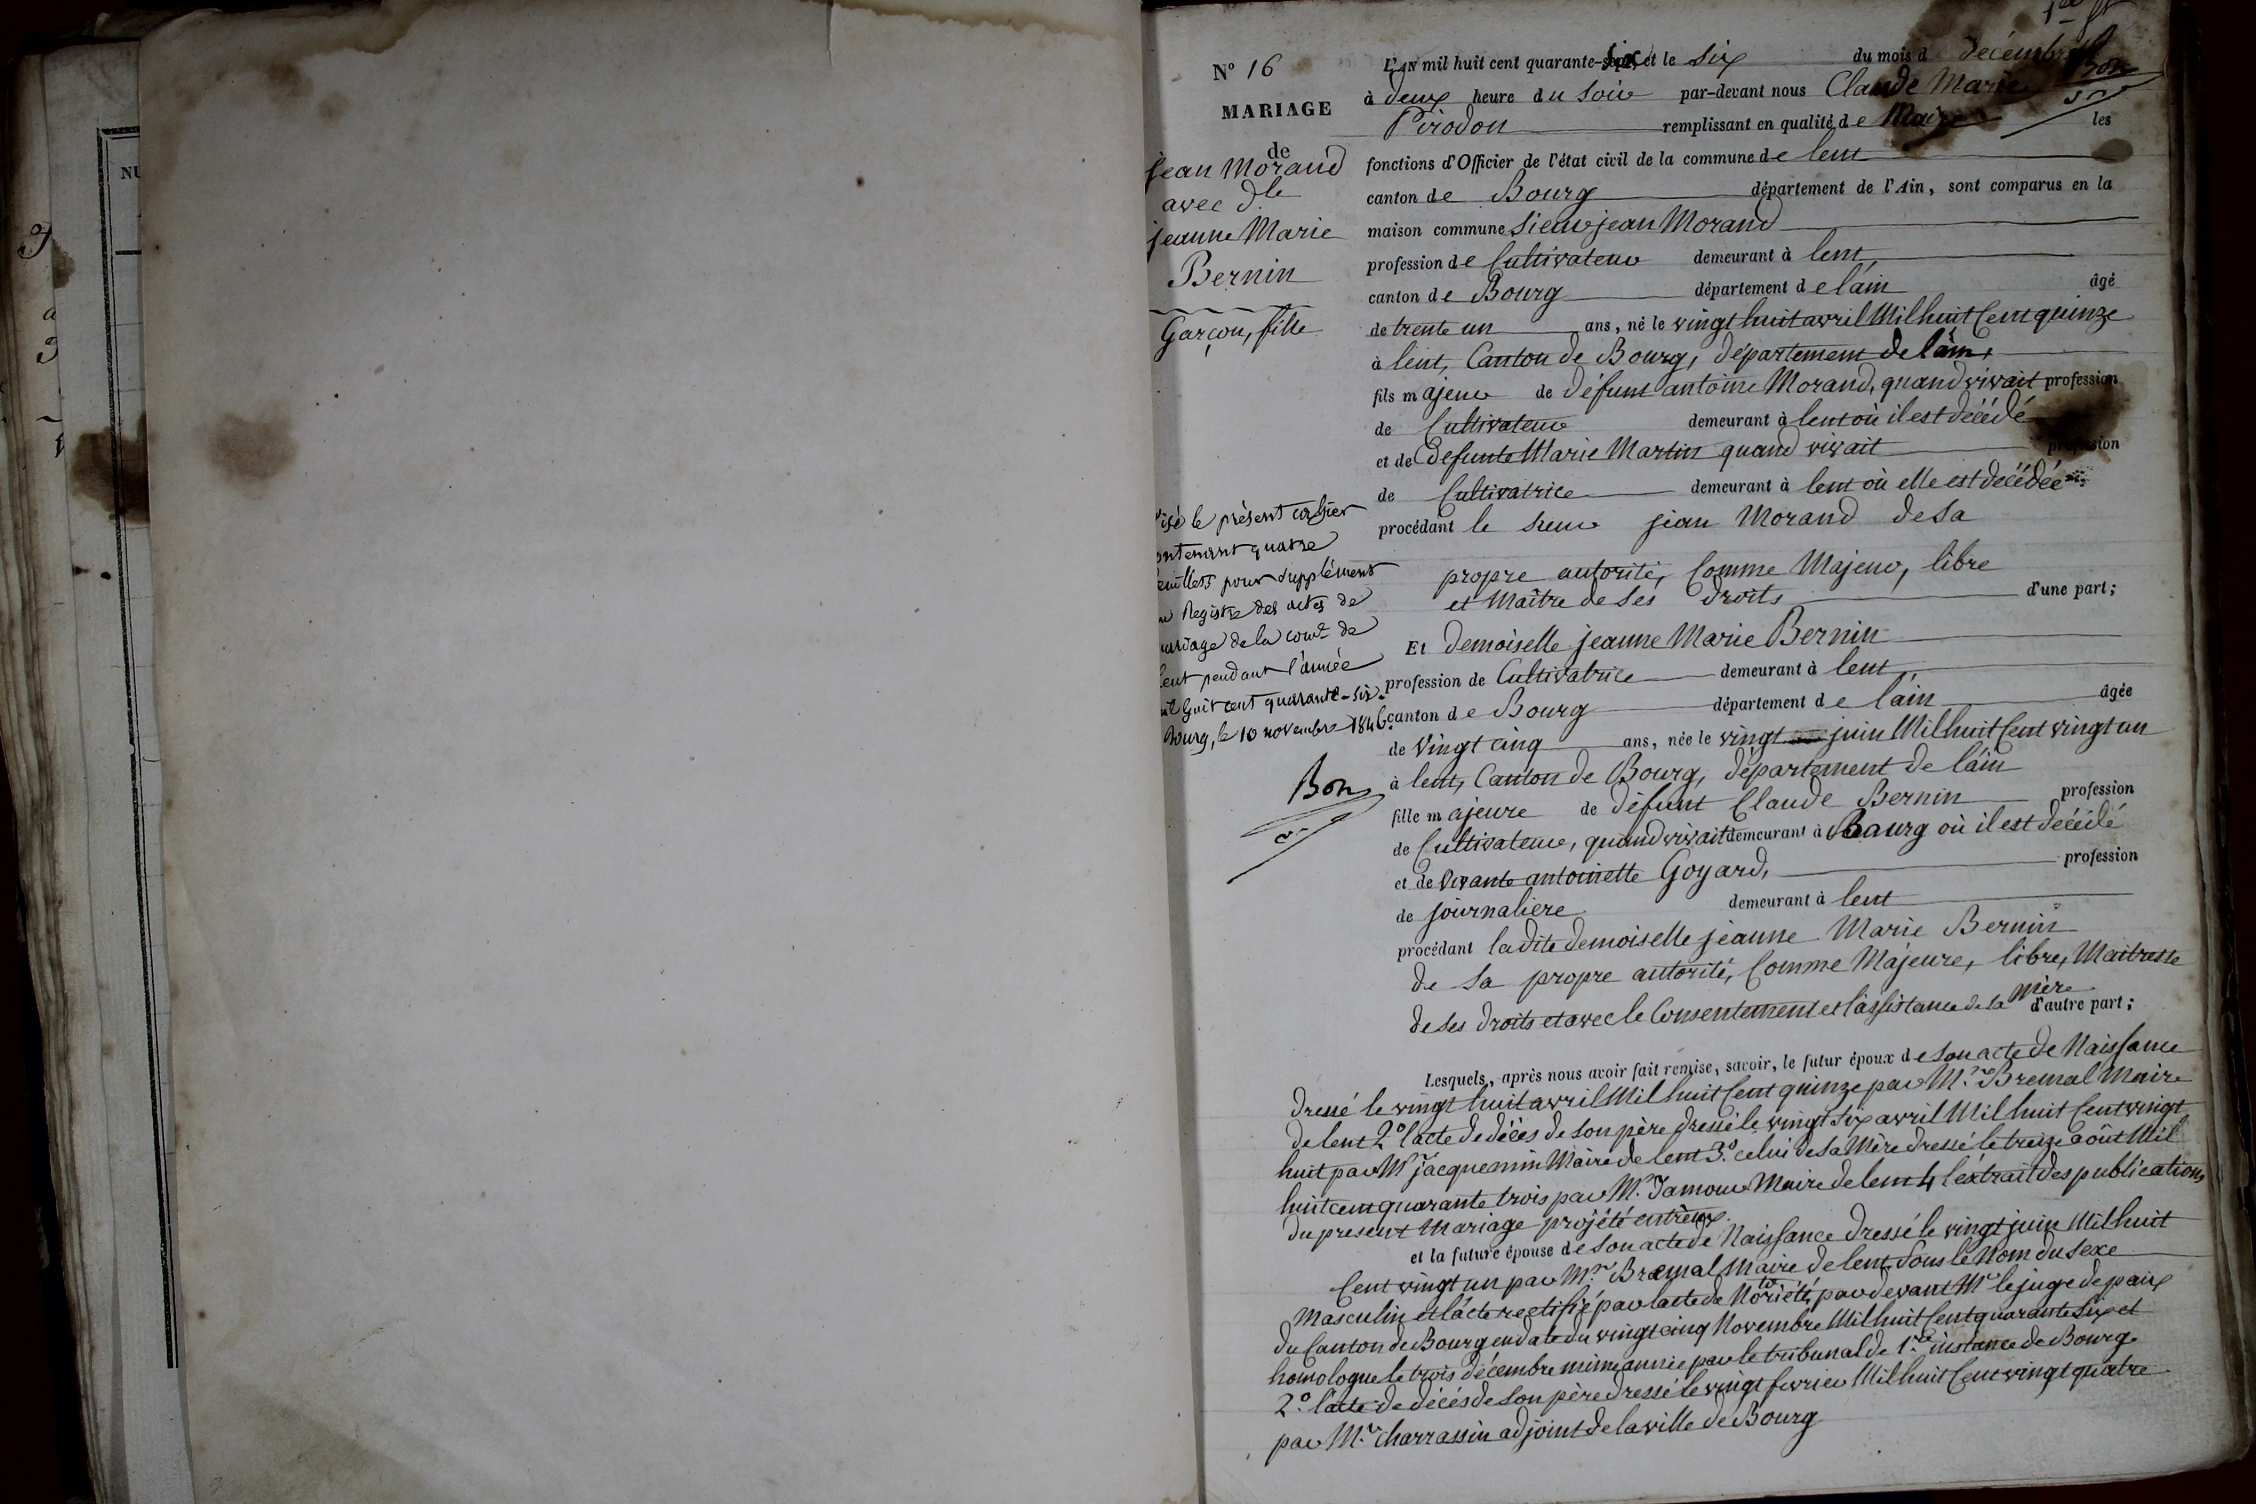 1er ft
N° 16
MARIAGE
de
jean Morand
avec dle
jeanne Marie
Bernin
Garçon, fille
L'AN mil huit cent quarante-six et le six du mois d décembre
à deux heure du soir par-devant nous Claude Marie
Pirodon remplissant en qualité de Maire les
fonctions d'Officier de l'état civil de la commune de lent
canton de Bourg département de l'Ain, sont comparus en la
maison commune sieur jean Morand
profession de Cultivateur demeurant à lent,
canton de Bourg département de l'ain âgé
de trente un ans, né le vingt huit avril Mil huit Cent quinze
à lent, Canton de Bourg, département de l'ain,
fils majeur de défunt antoine Morand, quand vivait profession
de Cultivateur demeurant à lent où il est décédé
et de defunte Marie Martin quand vivait profession
de Cultivatrice demeurant à lent où elle est décédée
procédant le sieur jean Morand de sa
propre autorité, Comme Majeur, libre
et Maître de ses droits d'une part;
Et demoiselle jeanne Marie Bernin
profession de Cultivatrice demeurant à lent,
canton de Bourg département de l'ain âgée
de vingt cinq ans, née le vingt juin Mil huit Cent vingt un
à lent, Canton de Bourg, département de l'ain
fille majeure de défunt Claude Bernin profession
de Cultivateur, quand vivait demeurant à Bourg où il est décédé
et de vivante antoinette Goyard, profession
de journaliere demeurant à lent
procédant la dite demoiselle jeanne Marie Bernin
de sa propre autorité, Comme Majeure, libre, Maitresse
de ses droits et avec le Consentement et l'assistance de sa mère d'autre part;
Lesquels, après nous avoir fait remise, savoir, le futur époux de son acte de Naissance
dressé le vingt huit avril Mil huit Cent quinze par Mr Bremal Maire
de lent 2° l'acte de décès de son père dressé le vingt six avril Mil huit Cent vingt
huit par Mr jacquemin Maire de lent 3° celui de sa Mère dressé le treize août Mil
huit cent quarante trois par Mr Jamour Maire de lent 4 l'extrait des publications
du present Mariage projété entreux.
et la future épouse de son acte de Naissance dressé le vingt juin Mil huit
Cent vingt un par Mr Bremal Maire de lent, sous le Nom du sexe
Masculin et l'acte rectifié par l'acte de Notoriété, par devant Mr le juge de paix
du Canton de Bourg en date du vingt cinq Novembre Mil huit Cent quarante six et
homologue le trois décembre même année par le tribunal de 1re instance de Bourg
2° l'acte de décès de son père dressé le vingt fevrier Mil huit Cent vingt quatre
par Mr charrassin adjoint de la ville de Bourg
Visé le présent cahier
contenant quatre
feuillets pour supplément
au Registre des actes de
mariage de la come de
Lent pendant l'année
mil huit cent quarante-six.
Bourg, le 10 novembre 1846.
Bon